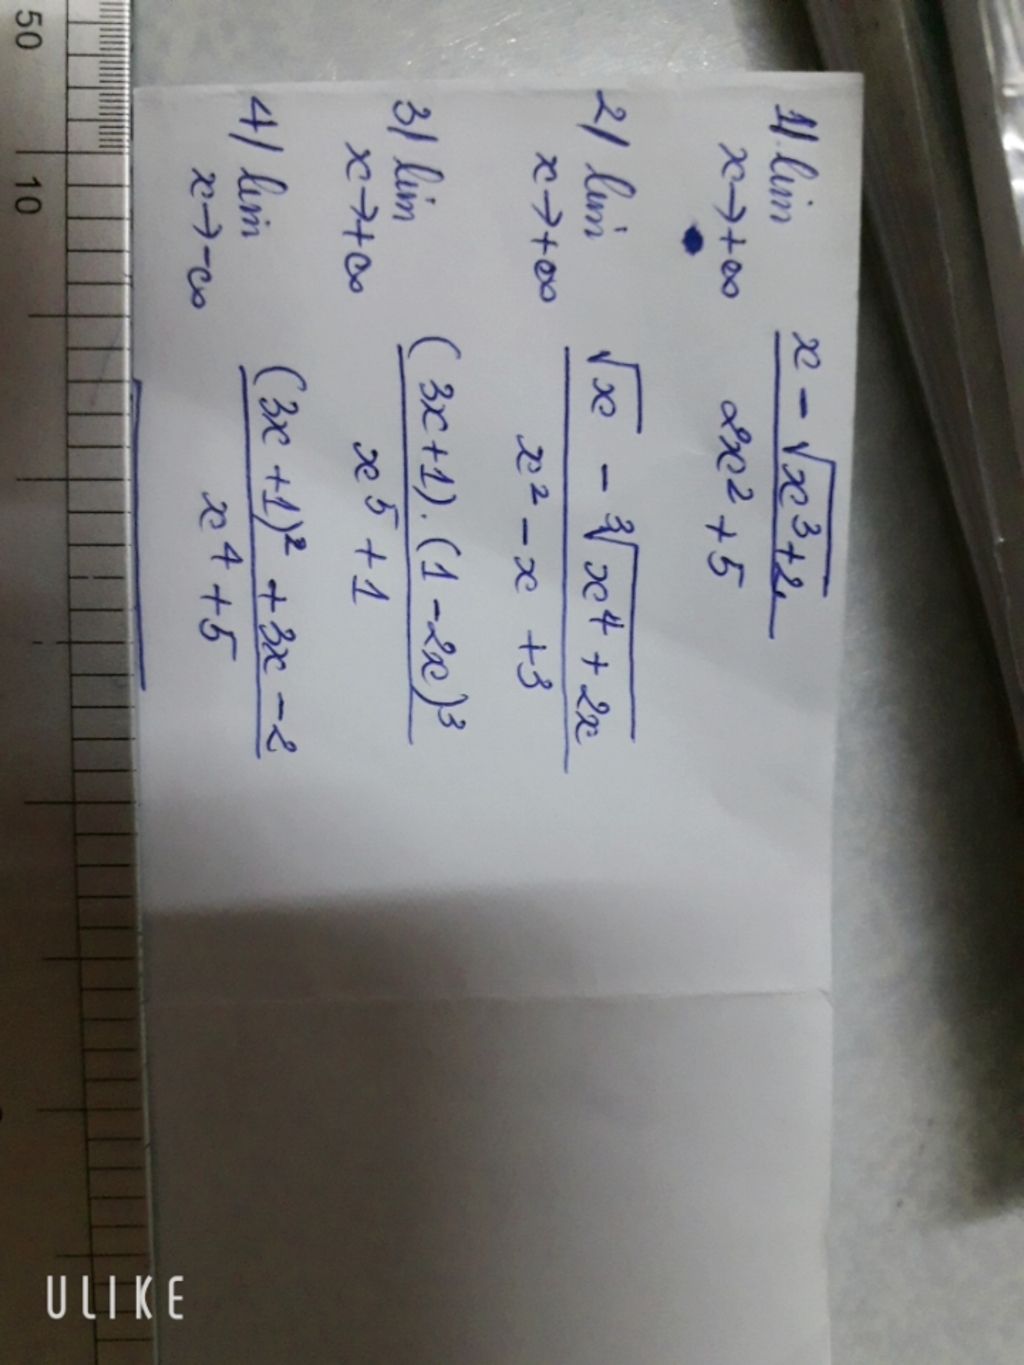 1) lim x - √x³+2
x→+∞ 2x² + 5
2) lim √x - ³√x⁴ + 2x
x→+∞ x² - x + 3
3) lim (3x+1).(1-2x)³
x→+∞ x⁵ + 1
4) lim (3x+1)² + 3x - 2
x→-∞ x⁴ + 5
50
10
ULIKE